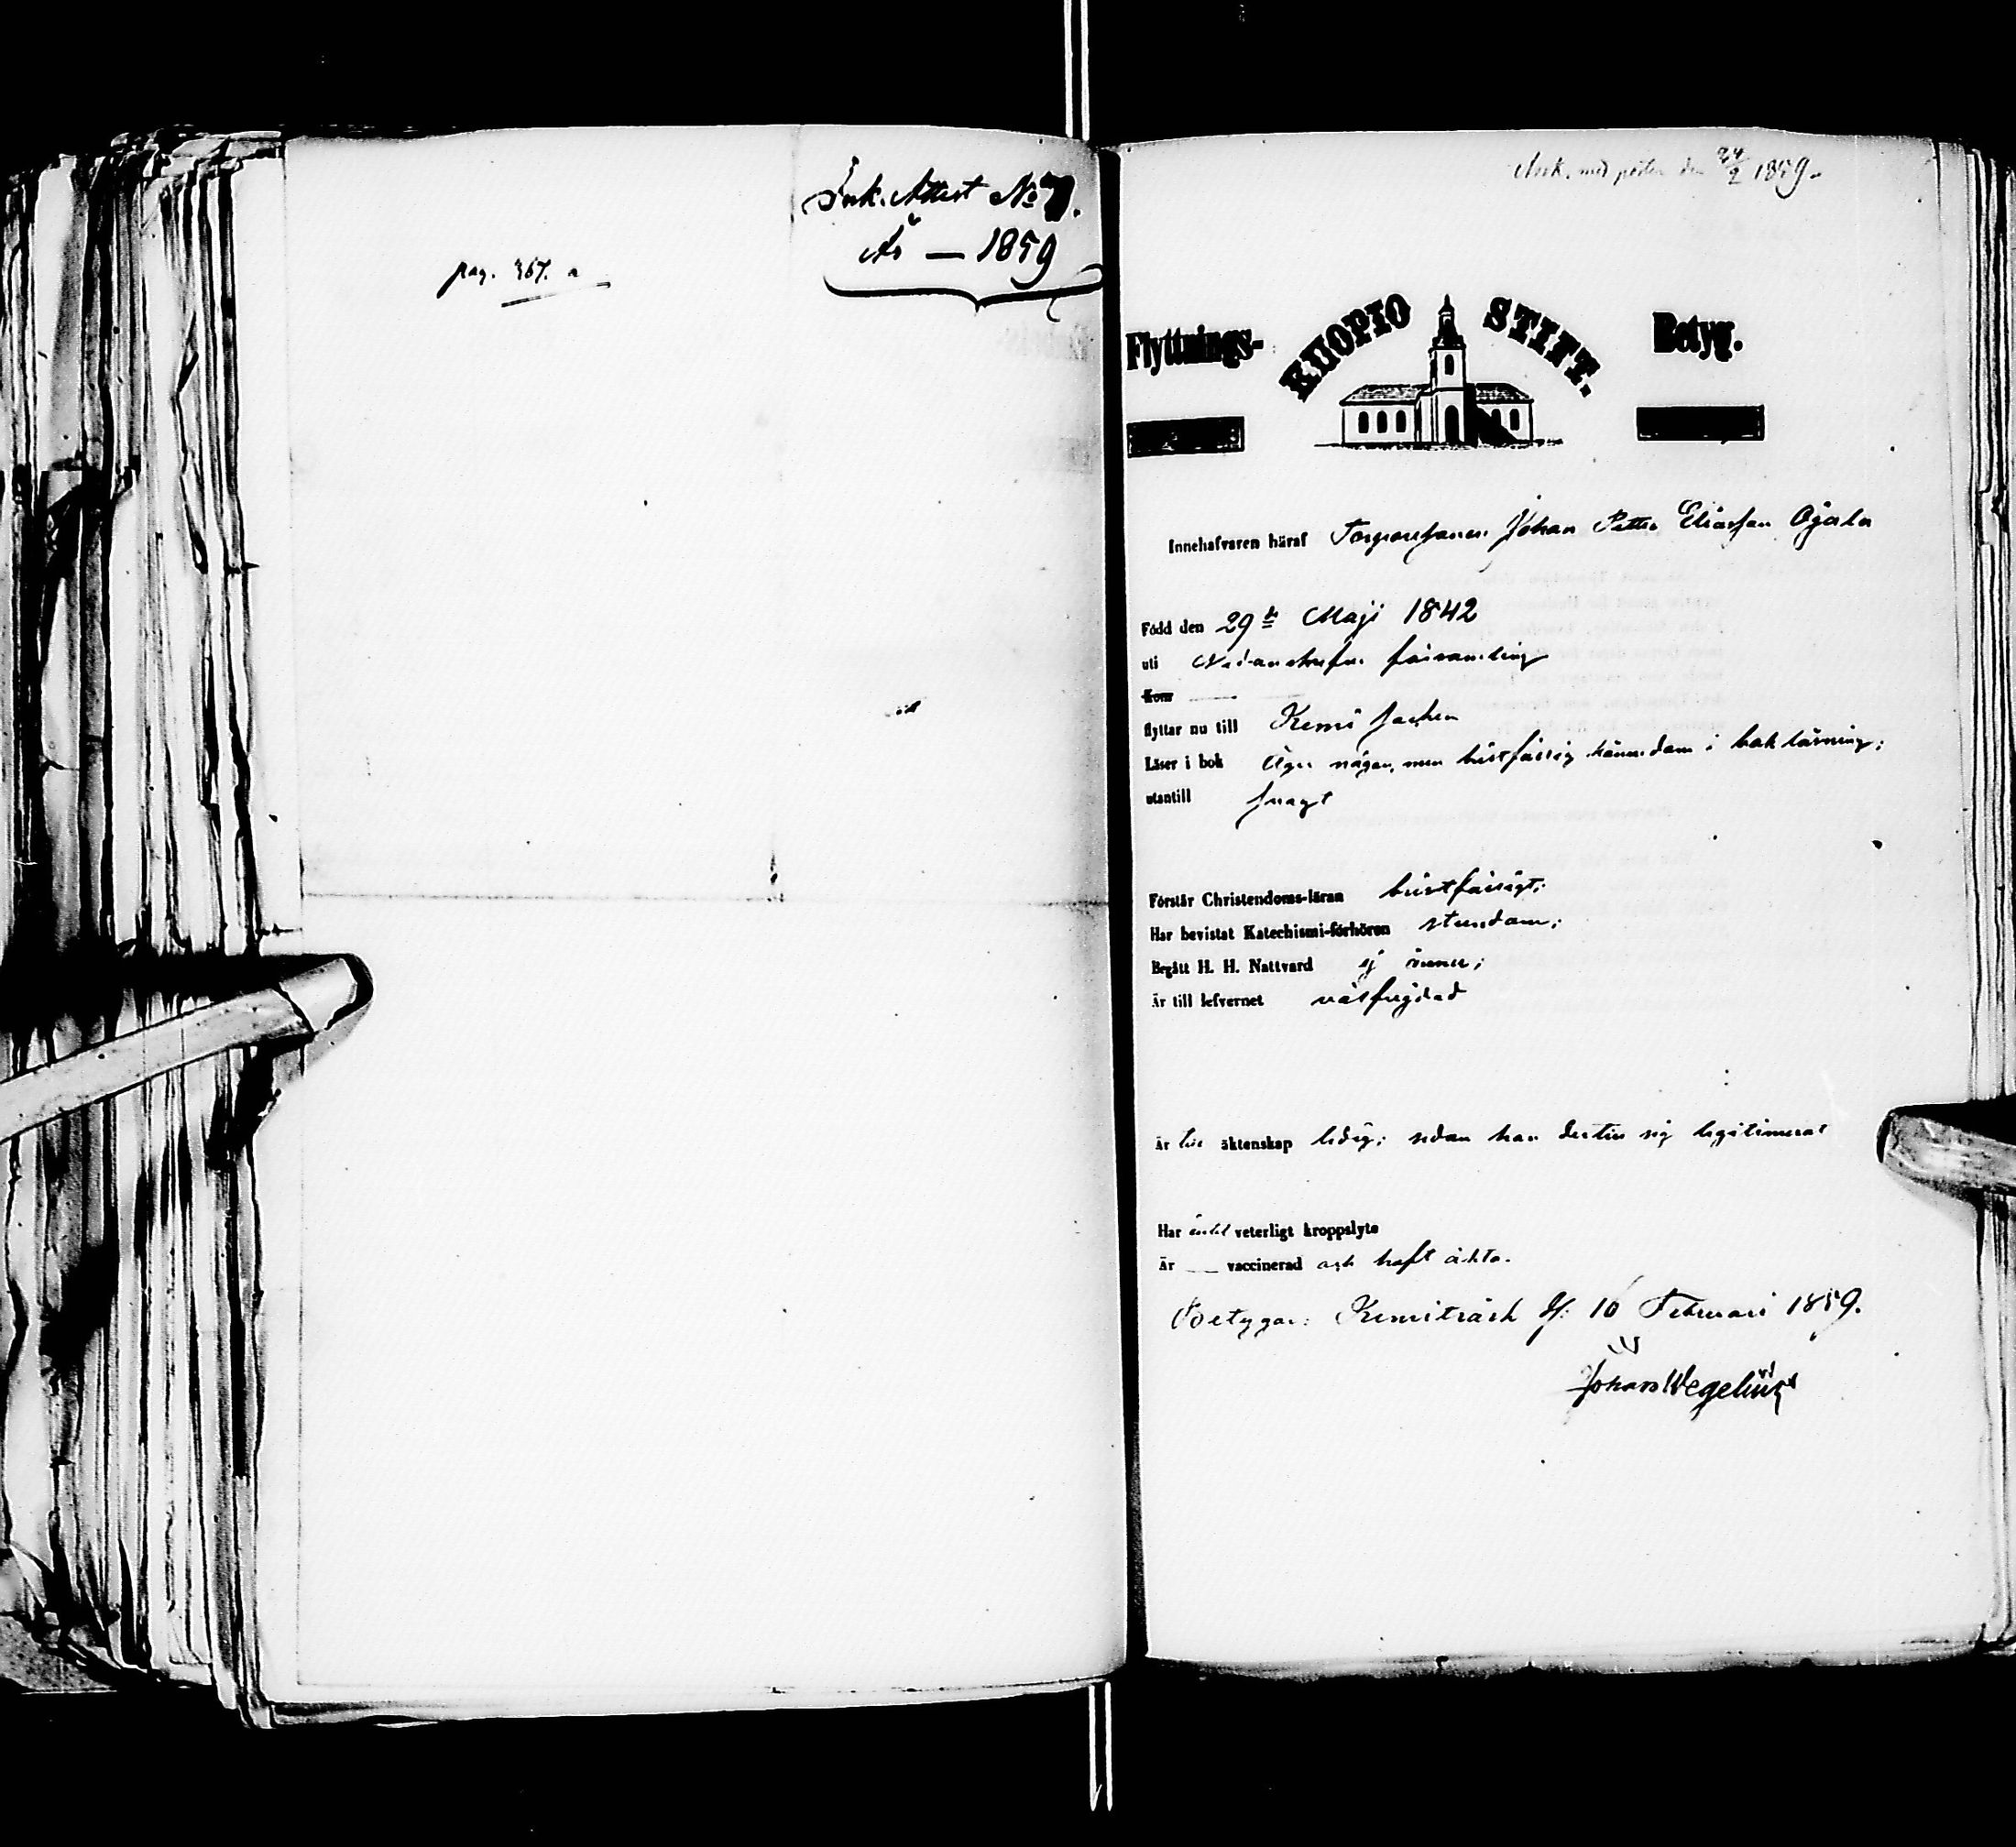 Ink. Attest No 7.
År — 1859
pag. 367. a
Ank. med posten den 24/2 1859.
Flyttnings- KUOPIO STIFT. Betyg.
Innehafvaren häraf Torparesonen Johan Petter Eliasson Ojala
Född den 29de Maji 1842
uti Nedanskrefne församling
Kom
flyttar nu till Kemi socken
Läser i bok Äger någon, men bristfällig kännedom i bokläsning;
utantill svagt
Förstår Christendoms-läran bristfälligt;
Har bevistat Katechismi-förhören stundom;
Begått H. H. Nattvard ej ännu;
Är till lefvernet välfrejdad
Är till äktenskap ledig; sedan han dertill sig legitimerat
Har intet veterligt kroppslyte
Är vaccinerad och haft ächta.
Betygar: Kemiträsk d. 16 Februari 1859.
Johan Wegelius